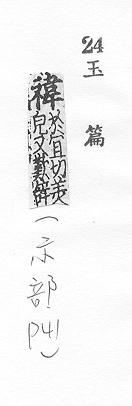 24玉篇
禕
於宜切美
皃又歎辭
(示部P41)